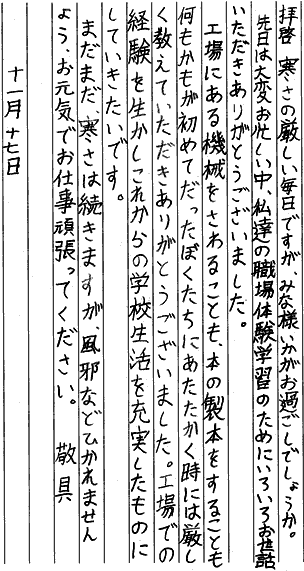 拝啓 寒さの厳しい毎日ですが、みな様いかがお過ごしでしょうか。
先日は大変お忙しい中、私達の職場体験学習のためにいろいろお世話
いただきありがとうございました。
工場にある機械をさわることも、本の製本をすることも
何もかもが初めてだったぼくたちにあたたかく時には厳し
く教えていただきありがとうございました。工場での
経験を生かしこれからの学校生活を充実したものに
していきたいです。
まだまだ、寒さは続きますが、風邪などひかれません
よう、お元気でお仕事頑張ってください。 敬具
十一月十七日